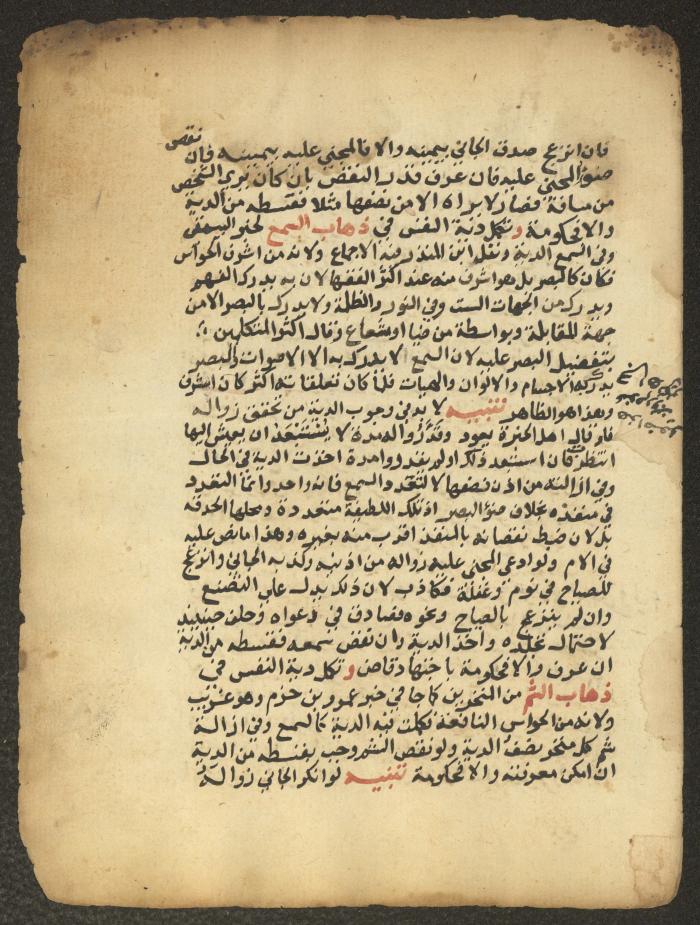 فان انزعج صدق الجاني بيمينه والا فالمجني عليه بيمينه فان نقص
ضوء المجني عليه فان عرف قدر النقص بان كان يرى الشخص
من مسافة فصار لا يراه الا من نصفها مثلا فقسطه من الدية
والا فحكومة وتكمل دية النفس في ذهاب السمع لخبر البيهقي
وفي السمع الدية ونقل ابن المنذر فيه الاجماع ولانه من اشرف الحواس
فكان كالبصر بل هو اشرف منه عند اكثر الفقها لان به يدرك الفهم
ويدرك من الجهات الست وفي النور والظلمة ولا يدرك بالبصر الا من
جهة المقابلة وبواسطة من ضيا او شعاع وقال اكثر المتكلمين
بتفضيل البصر عليه لان السمع لا يدرك به الا الاصوات والبصر
يدرك الاجسام والالوان والهيات فلما كان تعلقاته اكثر كان اشرف
وهذا هو الظاهر تنبيه لا بد في وجوب الدية من تحقق زواله
فلو قال اهل الخبرة يعود وقدروا له مدة لا يستبعد ان يعيش اليها
انتظرت فان استبعد ذلك او لم يقدروا مدة اخذت الدية في الحال
وفي ازالته من اذن نصفها لا لتعدد السمع فانه واحد وانما التعدد
في منفذه بخلاف ضوء البصر اذ تلك اللطيفة متعددة ومحلها الحدقة
بل لان ضبط نقصانه بالمنفذ اقرب منه بغيره وهذا ما نص عليه
في الام ولو ادعى المجني عليه زواله من اذنيه وكذبه الجاني وانزعج
للصياح في نوم وغفلة فكاذب لان ذلك يدل على التصنع
وان لم ينزعج بالصياح ونحوه فصادق في دعواه وحلف حينئذ
لاحتمال تجلده واخذ الدية وان نقص سمعه فقسطه من الدية
ان عرف والا فحكومة باجتهاد قاض وتكمل دية النفس في
ذهاب الشم من المنخرين كما جا في خبر عمرو بن حزم وهو غريب
ولانه من الحواس النافعة فكملت فيه الدية كالسمع وفي ازالة
شم كل منخر نصف الدية ولو نقص الشم وجب بقسطه من الدية
ان امكن معرفته والا فحكومة تنبيه لو انكر الجاني زواله